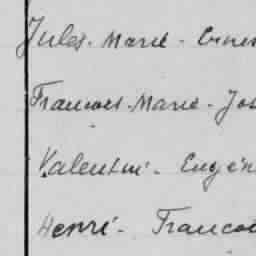 Jules - Marie -
Francois - Marie - Jos
Valentini - Eugén
Henri - Francoi